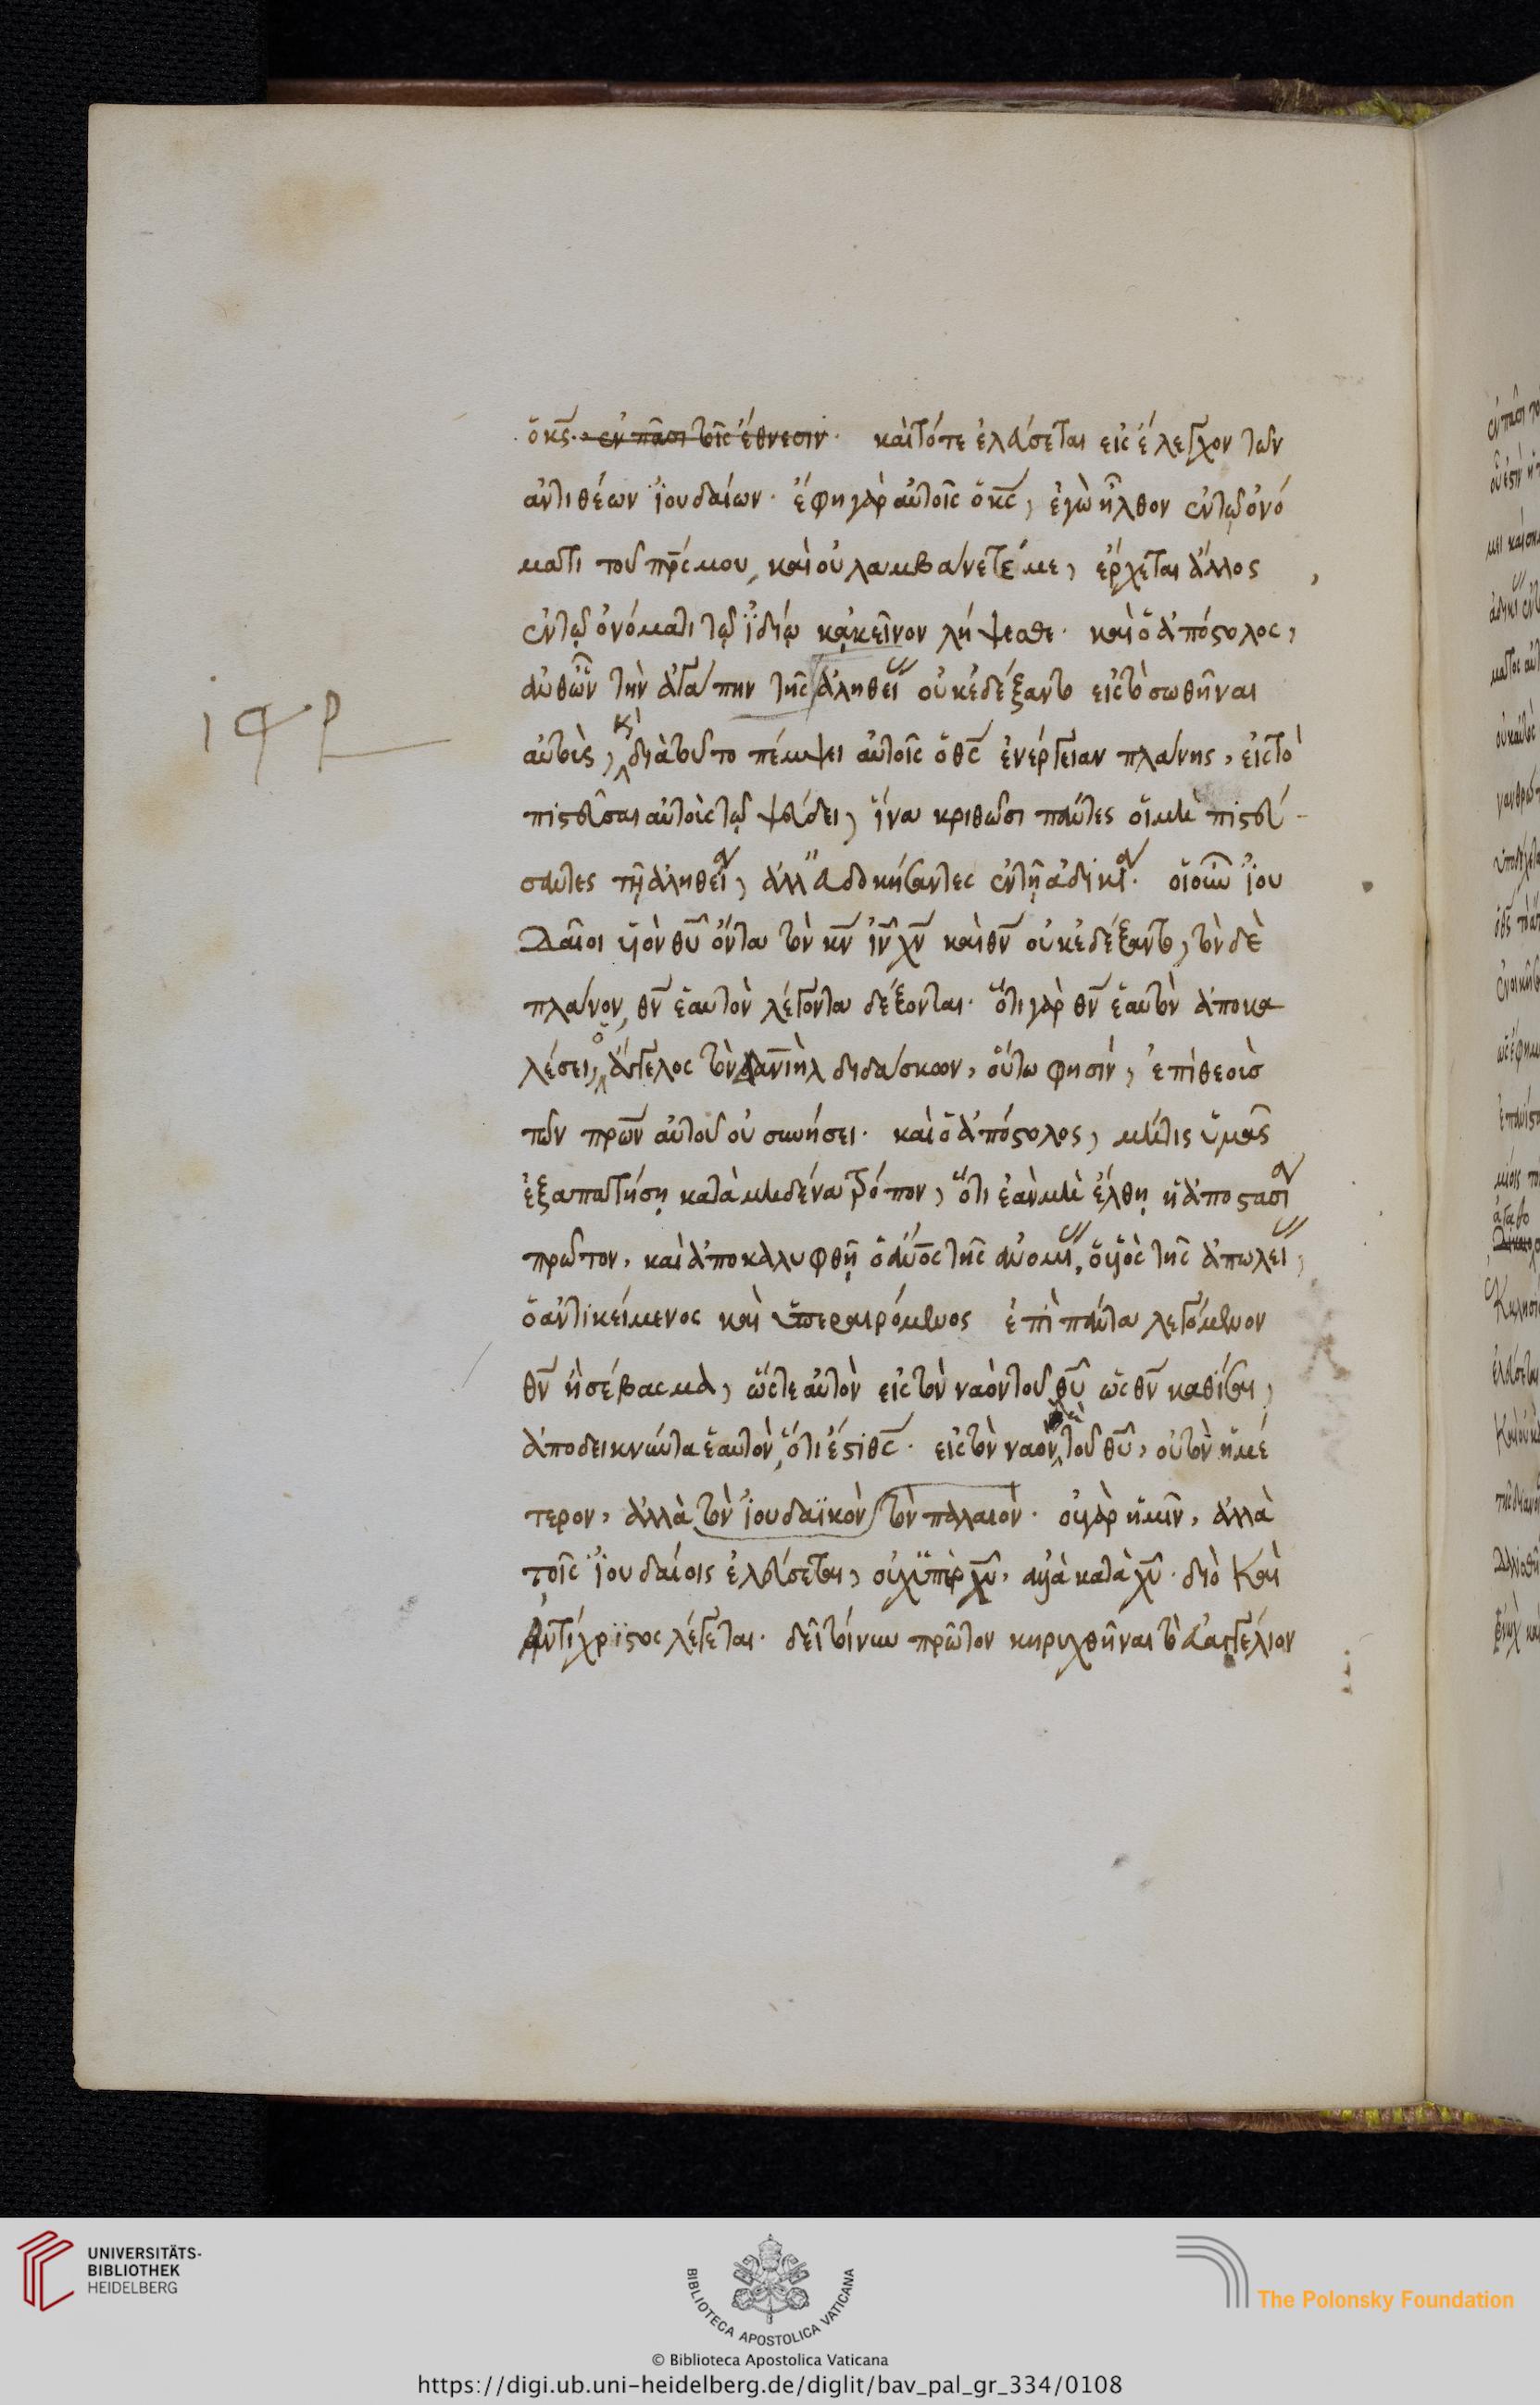 ὁ κς̄. ἐν πᾶσι τοῖς ἔθνεσιν. καὶ τότε ἐλεύσεται εἰς ἔλεγχον τῶν
ἀντιθέων ἰουδαίων. ἔφη γὰρ αὐτοῖς ὁ κς̄, ἐγὼ ἦλθον ἐν τῷ ὀνό
ματι τοῦ πρς̄ μου, καὶ οὐ λαμβάνετέ με, ἔρχεται ἄλλος
ἐν τῷ ὀνόματι τῷ ἰδίῳ κἀκεῖνον λήψεσθε. καὶ ὁ ἀπόστολος,
ἀνθῶν τὴν ἀγάπην τῆς ἀληθείας οὐκ ἐδέξαντο εἰς τὸ σωθῆναι
αὐτοὺς, κὶ διὰ τοῦτο πέμψει αὐτοῖς ὁ θς̄ ἐνέργειαν πλάνης, εἰς τὸ
πιστεῦσαι αὐτοὺς τῷ ψεύδει, ἵνα κριθῶσι πάντες οἱ μὴ πιστεύ-
σαντες τῇ ἀληθείᾳ, ἀλλ' εὐδοκήσαντες ἐν τῇ ἀδικίᾳ. οἱ οὖν ἰου
δαῖοι υἱὸν θῡ ὄντα τὸν κν̄ ἰν̄ χν̄ καὶ θν̄ οὐκ ἐδέξαντο, τὸν δὲ
πλάνον, θν̄ ἑαυτὸν λέγοντα δέξονται. ὅτι γὰρ θν̄ ἑαυτὸν ἀποκα
λέσει, ὁ ἄγγελος τὸν Δανιὴλ διδάσκων, οὕτω φησίν, ἐπὶ θεοὺς
τῶν πρων̄ αὐτοῦ οὐ συνήσει. καὶ ὁ ἀπόστολος, μήτις ὑμᾶς
ἐξαπατήσῃ κατὰ μηδένα τρόπον, ὅτι ἐὰν μὴ ἔλθῃ ἡ ἀποστασία
πρῶτον, καὶ ἀποκαλυφθῇ ὁ ἀνο̄ς τῆς ἀνομίας, ὁ υἱὸς τῆς ἀπωλείας,
ὁ ἀντικείμενος καὶ ὑπεραιρόμενος ἐπὶ πάντα λεγόμενον
θν̄ ἢ σέβασμα, ὥστε αὐτὸν εἰς τὸν ναὸν τοῦ θῡ ὡς θν̄ καθίσαι,
ἀποδεικνύντα ἑαυτὸν, ὅτι ἔστι θς̄. εἰς τὸν ναὸν τοῦ θῡ, οὐ τὸν ἡμέ
τερον, ἀλλὰ τὸν ἰουδαϊκὸν τὸν παλαιὸν. οὐ γὰρ ἡμῖν, ἀλλὰ
τοῖς ἰουδαίοις ἐλεύσεται, οὐχ ὑπὲρ χῡ, ἀλλὰ κατὰ χῡ. διὸ καὶ
ἀντίχριστος λέγεται. δεῖ τοίνυν πρῶτον κηρυχθῆναι τὸ εὐαγγέλιον
UNIVERSITÄTS-
BIBLIOTHEK
HEIDELBERG
BIBLIOTECA APOSTOLICA VATICANA
The Polonsky Foundation
© Biblioteca Apostolica Vaticana
https://digi.ub.uni-heidelberg.de/diglit/bav_pal_gr_334/0108